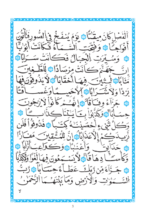 الْفَصْلِ كَانَ مِيقَاتًا يَوْمَ يُنْفَخُ فِي الصُّورِ فَتَأْتُونَ
أَفْوَاجًا وَفُتِحَتِ السَّمَاءُ فَكَانَتْ أَبْوَابًا
وَسُيِّرَتِ الْجِبَالُ فَكَانَتْ سَرَابًا إِنَّ
جَهَنَّمَ كَانَتْ مِرْصَادًا لِلطَّاغِينَ
مَآبًا لَابِثِينَ فِيهَا أَحْقَابًا لَا يَذُوقُونَ فِيهَا
بَرْدًا وَلَا شَرَابًا إِلَّا حَمِيمًا وَغَسَّاقًا
جَزَاءً وِفَاقًا إِنَّهُمْ كَانُوا لَا يَرْجُونَ
حِسَابًا وَكَذَّبُوا بِآيَاتِنَا كِذَّابًا
وَكُلَّ شَيْءٍ أَحْصَيْنَاهُ كِتَابًا فَذُوقُوا فَلَنْ
نَزِيدَكُمْ إِلَّا عَذَابًا إِنَّ لِلْمُتَّقِينَ مَفَازًا
حَدَائِقَ وَأَعْنَابًا وَكَوَاعِبَ أَتْرَابًا
وَكَأْسًا دِهَاقًا لَا يَسْمَعُونَ فِيهَا لَغْوًا وَلَا كِذَّابًا
جَزَاءً مِنْ رَبِّكَ عَطَاءً حِسَابًا رَبِّ
السَّمَاوَاتِ وَالْأَرْضِ وَمَا بَيْنَهُمَا الرَّحْمَٰنِ